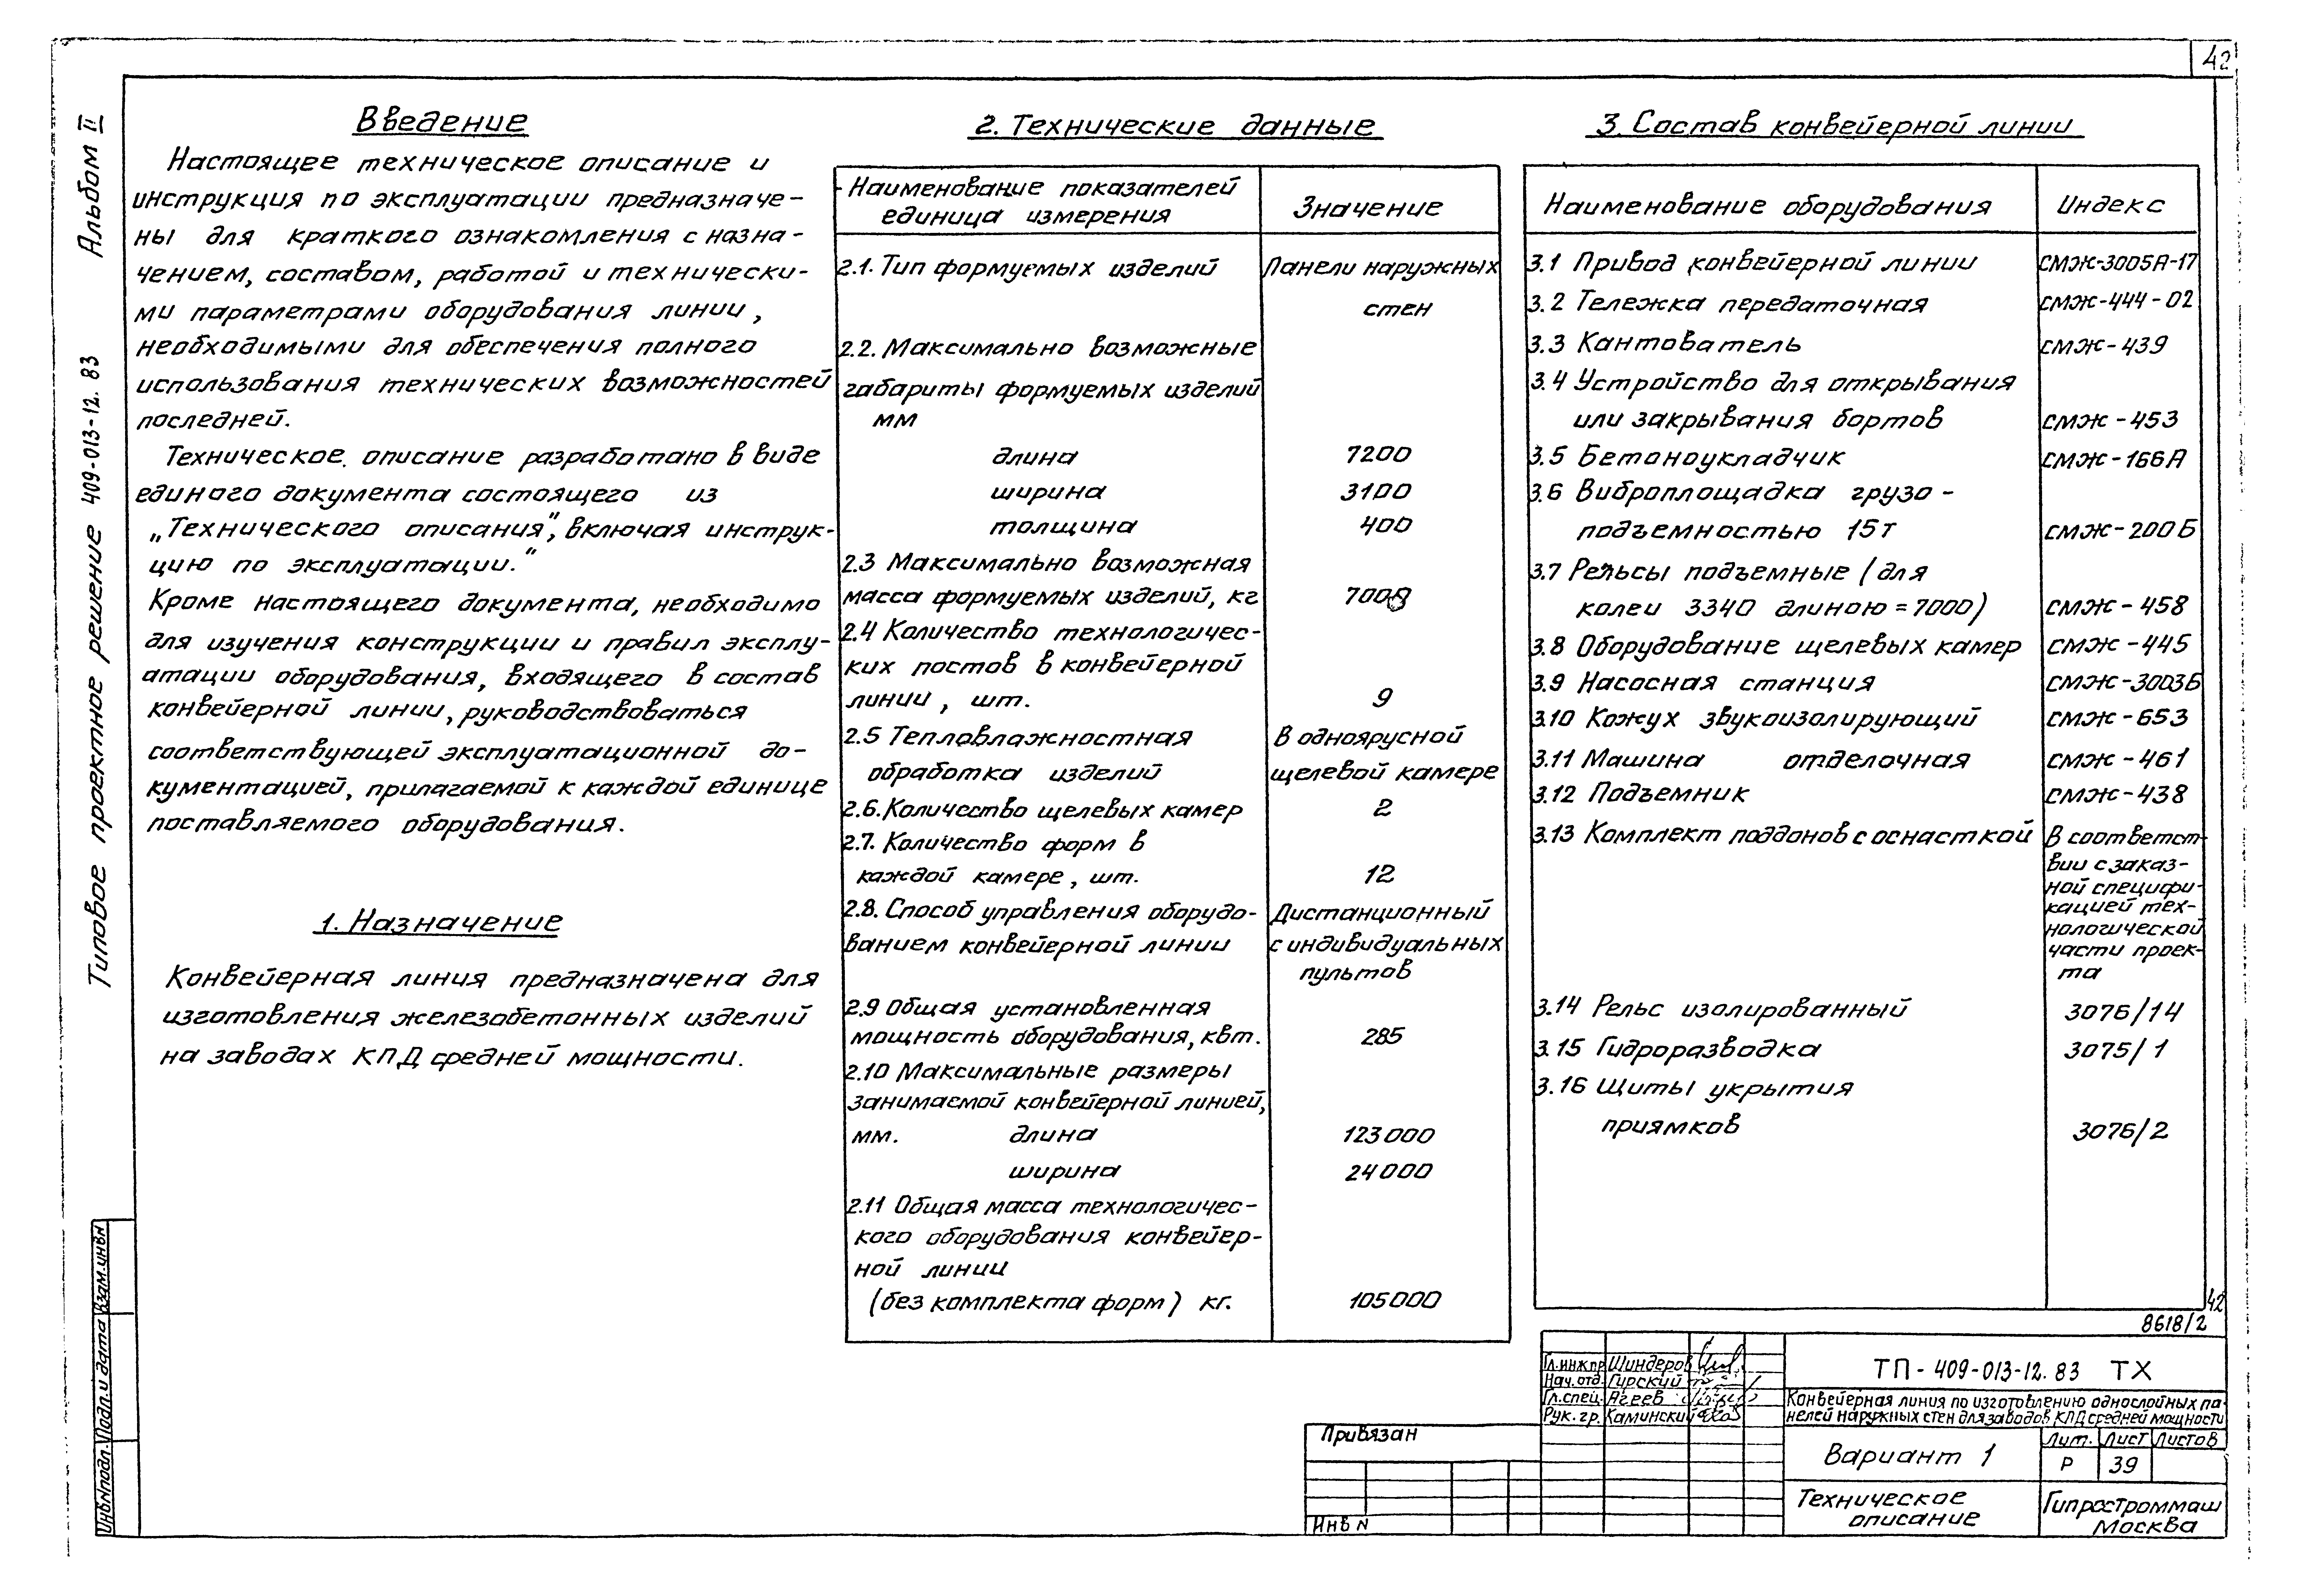 42
Альбом II
Типовое проектное решение 409-013-12.83
Введение
Настоящее техническое описание и
инструкция по эксплуатации предназначе-
ны для краткого ознакомления с назна-
чением, составом, работой и технически-
ми параметрами оборудования линии,
необходимыми для обеспечения полного
использования технических возможностей
последней.
Техническое описание разработано в виде
единого документа состоящего из
„Технического описания", включая инструк-
цию по эксплуатации."
Кроме настоящего документа, необходимо
для изучения конструкции и правил эксплу-
атации оборудования, входящего в состав
конвейерной линии, руководствоваться
соответствующей эксплуатационной до-
кументацией, прилагаемой к каждой единице
поставляемого оборудования.
1. Назначение
Конвейерная линия предназначена для
изготовления железобетонных изделий
на заводах КПД средней мощности.
2. Технические данные
Наименование показателей
единица измерения
Значение
2.1. Тип формуемых изделий Панели наружных
стен
2.2. Максимально возможные
габариты формуемых изделий
мм
длина 7200
ширина 3100
толщина 400
2.3 Максимально возможная
масса формуемых изделий, кг 7000
2.4 Количество технологичес-
ких постов в конвейерной
линии, шт. 9
2.5 Тепловлажностная В одноярусной
обработка изделий щелевой камере
2.6. Количество щелевых камер 2
2.7. Количество форм в
каждой камере, шт. 12
2.8. Способ управления оборудо- Дистанционный
ванием конвейерной линии с индивидуальных
пультов
2.9 Общая установленная
мощность оборудования, квт. 285
2.10 Максимальные размеры
занимаемой конвейерной линией,
мм. длина 123000
ширина 24000
2.11 Общая масса технологичес-
кого оборудования конвейер-
ной линии
(без комплекта форм) кг. 105000
3. Состав конвейерной линии
Наименование оборудования Индекс
3.1 Привод конвейерной линии СМЖ-3005А-17
3.2 Тележка передаточная СМЖ-444-02
3.3 Кантователь СМЖ-439
3.4 Устройство для открывания
или закрывания бортов СМЖ-453
3.5 Бетоноукладчик СМЖ-166А
3.6 Виброплощадка грузо-
подъемностью 15т СМЖ-200Б
3.7 Рельсы подъемные (для
колеи 3340 длиною = 7000) СМЖ-458
3.8 Оборудование щелевых камер СМЖ-445
3.9 Насосная станция СМЖ-3003Б
3.10 Кожух звукоизолирующий СМЖ-653
3.11 Машина отделочная СМЖ-461
3.12 Подъемник СМЖ-438
3.13 Комплект поддонов с оснасткой В соответст-
вии с заказ-
ной специфи-
кацией тех-
нологической
части проек-
та
3.14 Рельс изолированный 3076/14
3.15 Гидроразводка 3075/1
3.16 Щиты укрытия
приямков 3076/2
42
8618/2
Гл.инж.пр Шиндеров
Нач.отд. Гирский
Гл.спец. Агеев
Рук.гр. Каминский
ТП-409-013-12.83 ТХ
Конвейерная линия по изготовлению однослойных па-
нелей наружных стен для заводов КПД средней мощности
Вариант 1
Лит. Лист Листов
Р 39
Техническое
описание
Гипростроммаш
Москва
Привязан
Инв N
Взам.инвN
Подп. и дата
ИнвNподл.